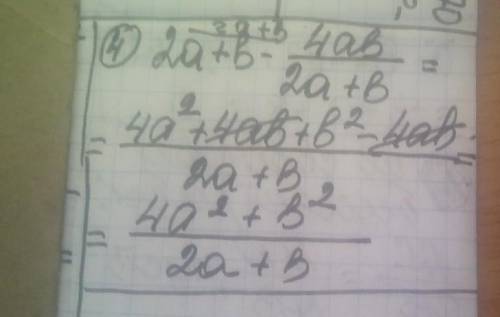 ④ 2a+b - 4ab/2a+b =
2a+b
= 4a²+4ab+b²-4ab/2a+b =
= 4a²+b²/2a+b